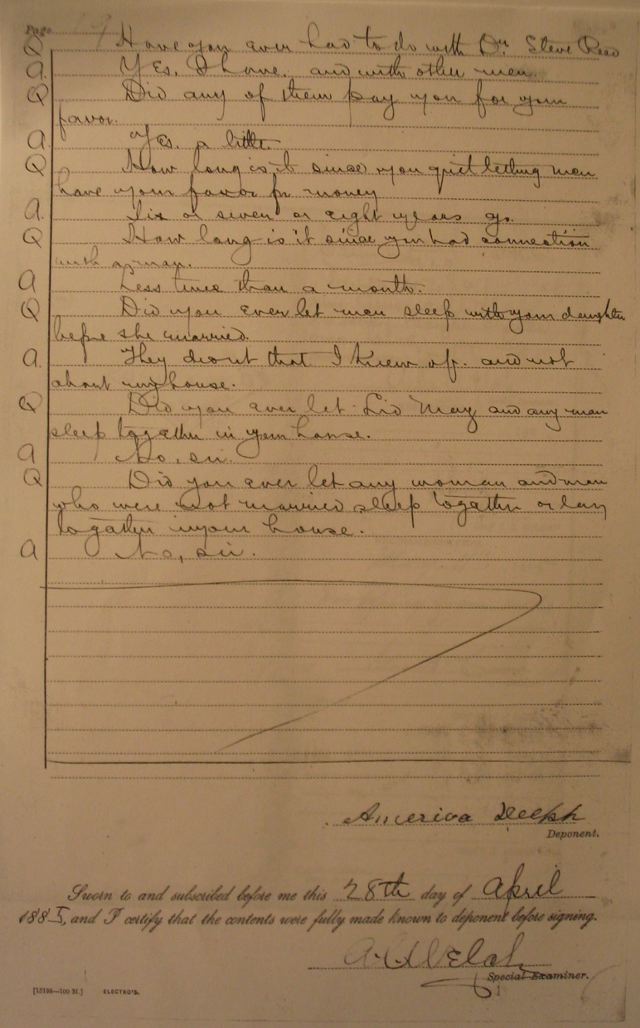 Page 19
Q Have you ever had to do with Dr. Steve Reed
a. Yes. I have. and with other men.
Q Did any of them pay you for your
favor.
a Yes. a little
Q How long is it since you quit letting men
have your favor for money
a. Six or seven or eight years ago.
Q How long is it since you had connection
with a man.
a Less time than a month.
Q Did you ever let men sleep with your daughter
before she married.
a. They didn't that I knew of. and not
about my house.
Q Did you ever let Lid May and any man
sleep together in your house.
a No, sir.
Q Did you ever let any woman and man
who were not married sleep together or lay
together in your house.
a No, sir.
America Delph
Deponent.
Sworn to and subscribed before me this 28th day of April
1885, and I certify that the contents were fully made known to deponent before signing.
Welch
Special Examiner.
ELECTRO'D.